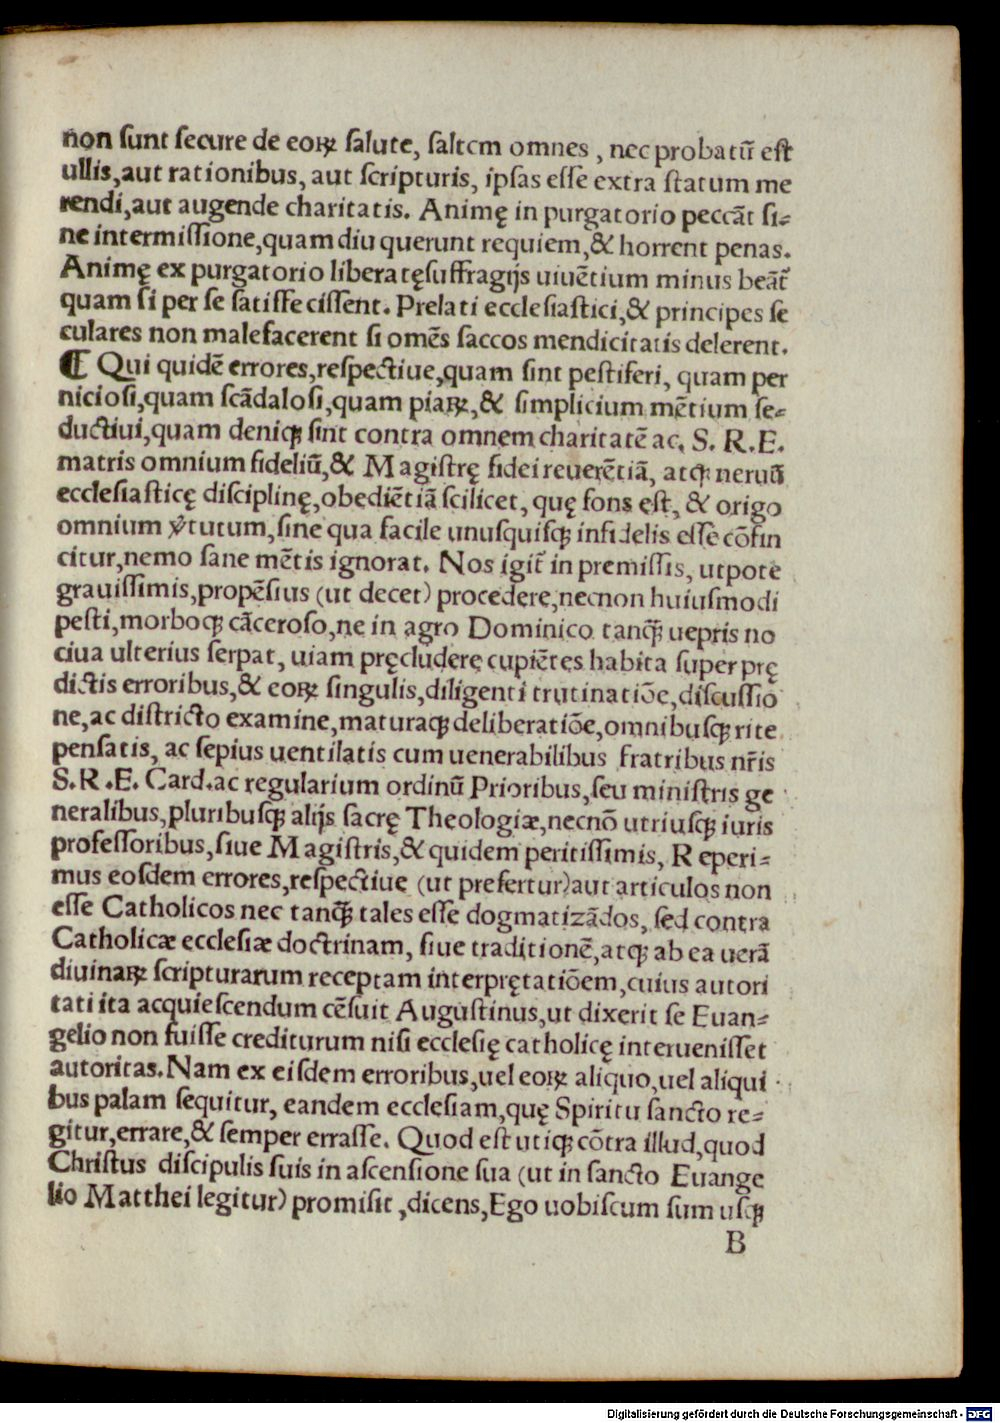 non sunt secure de eoꝝ salute, saltem omnes , nec probatū est
ullis,aut rationibus, aut scripturis, ipsas esse extra statum me
rendi,aut augende charitatis. Animę in purgatorio peccāt si⸗
ne intermissione,quam diu querunt requiem,& horrent penas.
Animę ex purgatorio liberatęsuffragijs uiuētium minus beāt̃
quam si per se satisfecissent. Prelati ecclesiastici,& principes se
culares non malefacerent si omēs saccos mendicitatis delerent.
¶ Qui quidē errores,respectiue,quam sint pestiferi, quam per
niciosi,quam scādalosi,quam piaꝝ,& simplicium mētium se⸗
ductiui,quam deniqꝫ sint contra omnem charitatē ac, S. R.E.
matris omnium fideliū,& Magistrę fidei reuerētiā, atqꝫ neruū
ecclesiasticę disciplinę,obediētiā scilicet, quę fons est, & origo
omnium v̓tutum,sine qua facile unusquisqꝫ infidelis esse cōfin
citur,nemo sane mētis ignorat. Nos igit̃ in premissis, utpote
grauissimis,propēsius (ut decet) procedere,necnon huiusmodi
pesti,morboqꝫ cāceroso,ne in agro Dominico tanqꝫ̄ uepris no
ciua ulterius serpat, uiam pręcludere cupiētes habita super prę
dictis erroribus,& eoꝝ singulis,diligenti trutinatiōe,discussio
ne,ac districto examine,maturaqꝫ deliberatiōe,omnibusqꝫ rite
pensatis, ac sepius uentilatis cum uenerabilibus fratribus nr̃is
S.R.E. Card.ac regularium ordinū Prioribus,seu ministris ge
neralibus,pluribusqꝫ alijs sacrę Theologiæ,necnō utriusqꝫ iuris
professoribus,siue Magistris,& quidem peritissimis, Reperi⸗
mus eosdem errores,respectiue (ut prefertur)aut articulos non
esse Catholicos nec tanqꝫ̄ tales esse dogmatizādos, sed contra
Catholicæ ecclesiæ doctrinam, siue traditionē,atqꝫ ab ea uerā
diuinaꝝ scripturarum receptam interpretatiōem,cuius autori
tati ita acquiescendum cēsuit Augustinus,ut dixerit se Euan⸗
gelio non fuisse crediturum nisi ecclesię catholicę interuenisset
autoritas.Nam ex eisdem erroribus,uel eoꝝ aliquo,uel aliqui
bus palam sequitur, eandem ecclesiam,quę Spiritu sancto re⸗
gitur,errare,& semper errasse. Quod est utiqꝫ cōtra illud,quod
Christus discipulis suis in ascensione sua (ut in sancto Euange
lio Matthei legitur) promisit ,dicens,Ego uobiscum sum usqꝫ
B
Digitalisierung gefördert durch die Deutsche Forschungsgemeinschaft - DFG